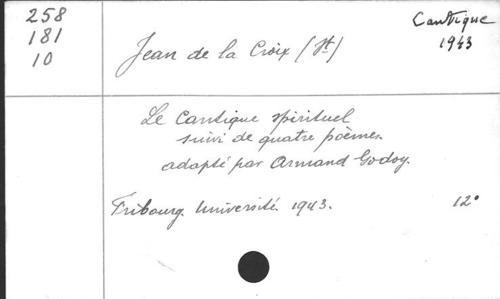 258
181
10
Cantique
1943
Jean de la Croix (St)
Le Cantique spirituel
suivi de quatre poèmes.
adapté par Armand Godoy.
Fribourg. Université. 1943. 12°